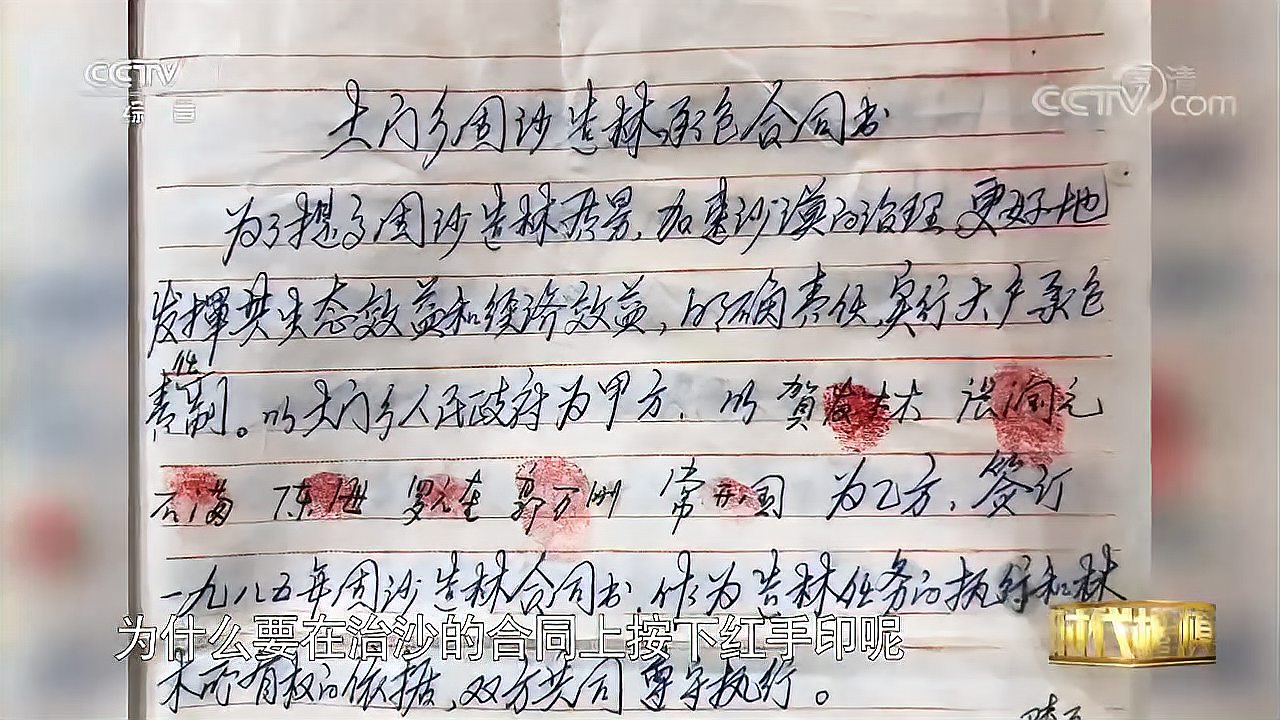 CCTV
综合
高清
CCTV com
土门乡固沙造林承包合同书
为了提高固沙造林质量,加速沙漠的治理,更好地
发挥其生态效益和经济效益,明确责任,实行大户承包
责任制。以土门乡人民政府为甲方,以贺发林 张润元
石满 陈海 罗元奎 郭万刚 常开国 为乙方,签订
一九八五年固沙造林合同书,作为造林任务的执行和林
为什么要在治沙的合同上按下红手印呢
时代楷模
木所有权的依据,双方共同遵守执行。